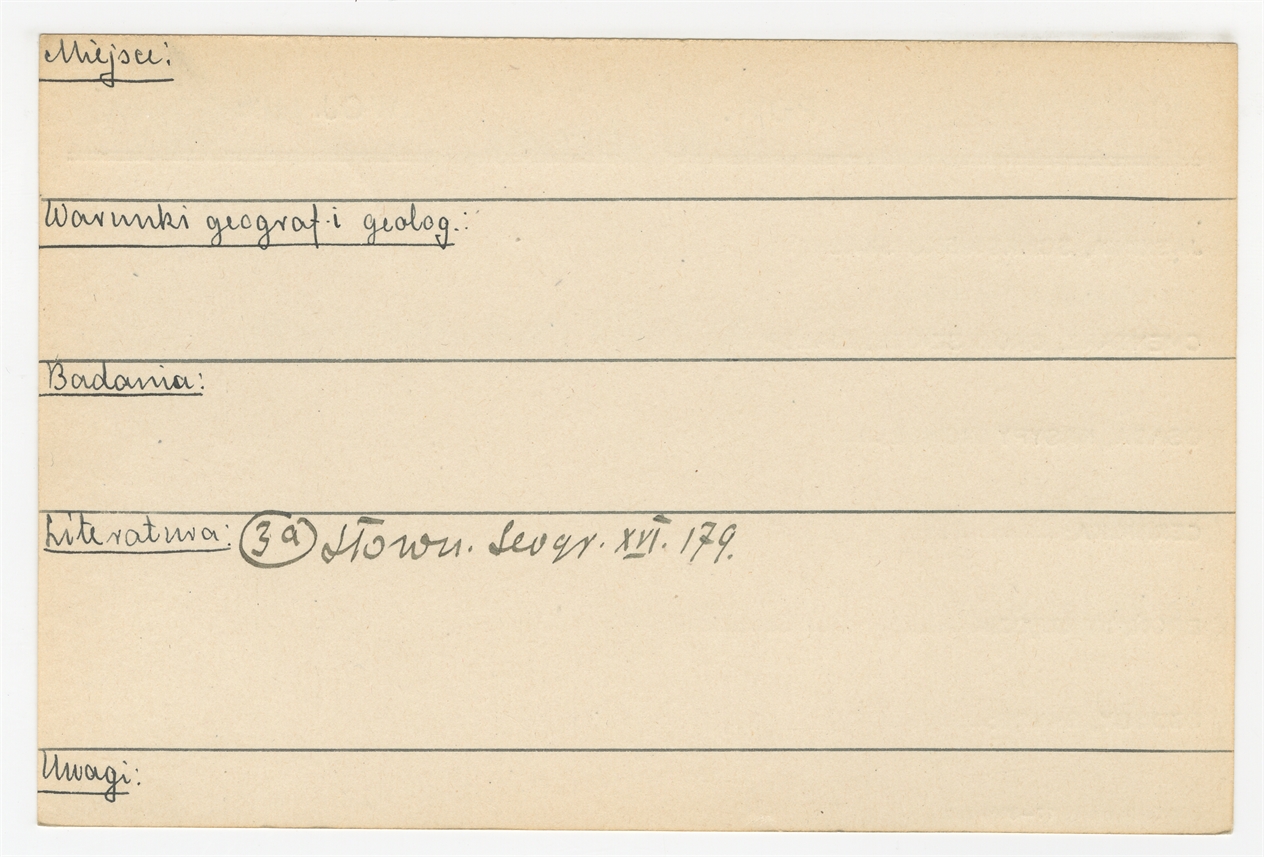 Miejsce:
Warunki geograf. i geolog.:
Badania:
Literatura: (3a) Słown. Geogr. XVI. 179.
Uwagi: